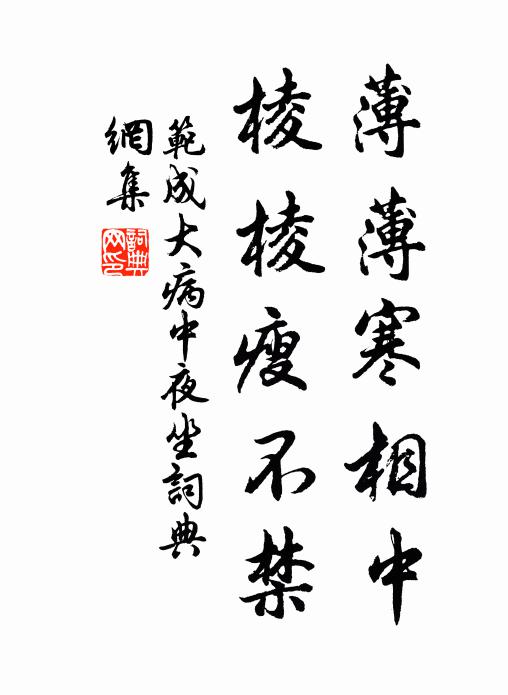 薄薄寒相中
棱棱瘦不禁
範成大病中夜坐詞典
網集
詞典網印